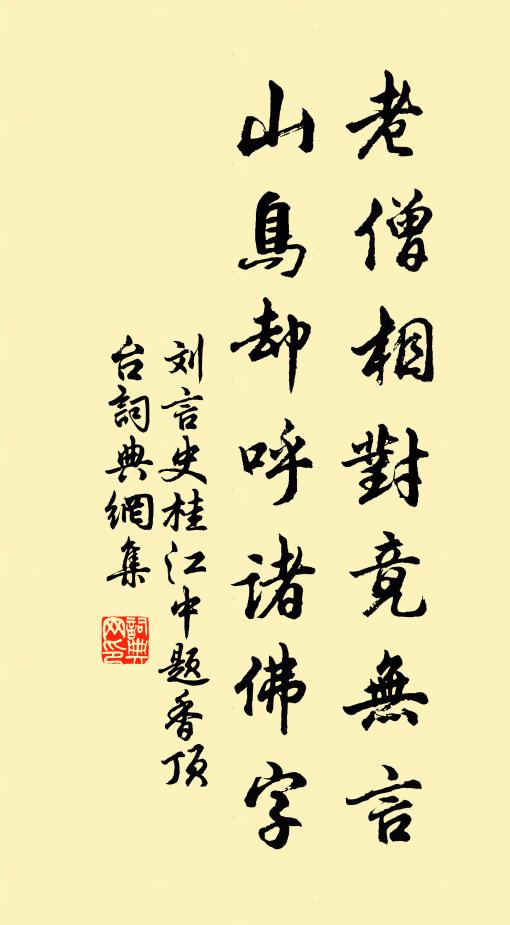 老僧相對竟無言
山鳥却呼諸佛字
刘言史桂江中題香顶
台詞典網集
詞典網印